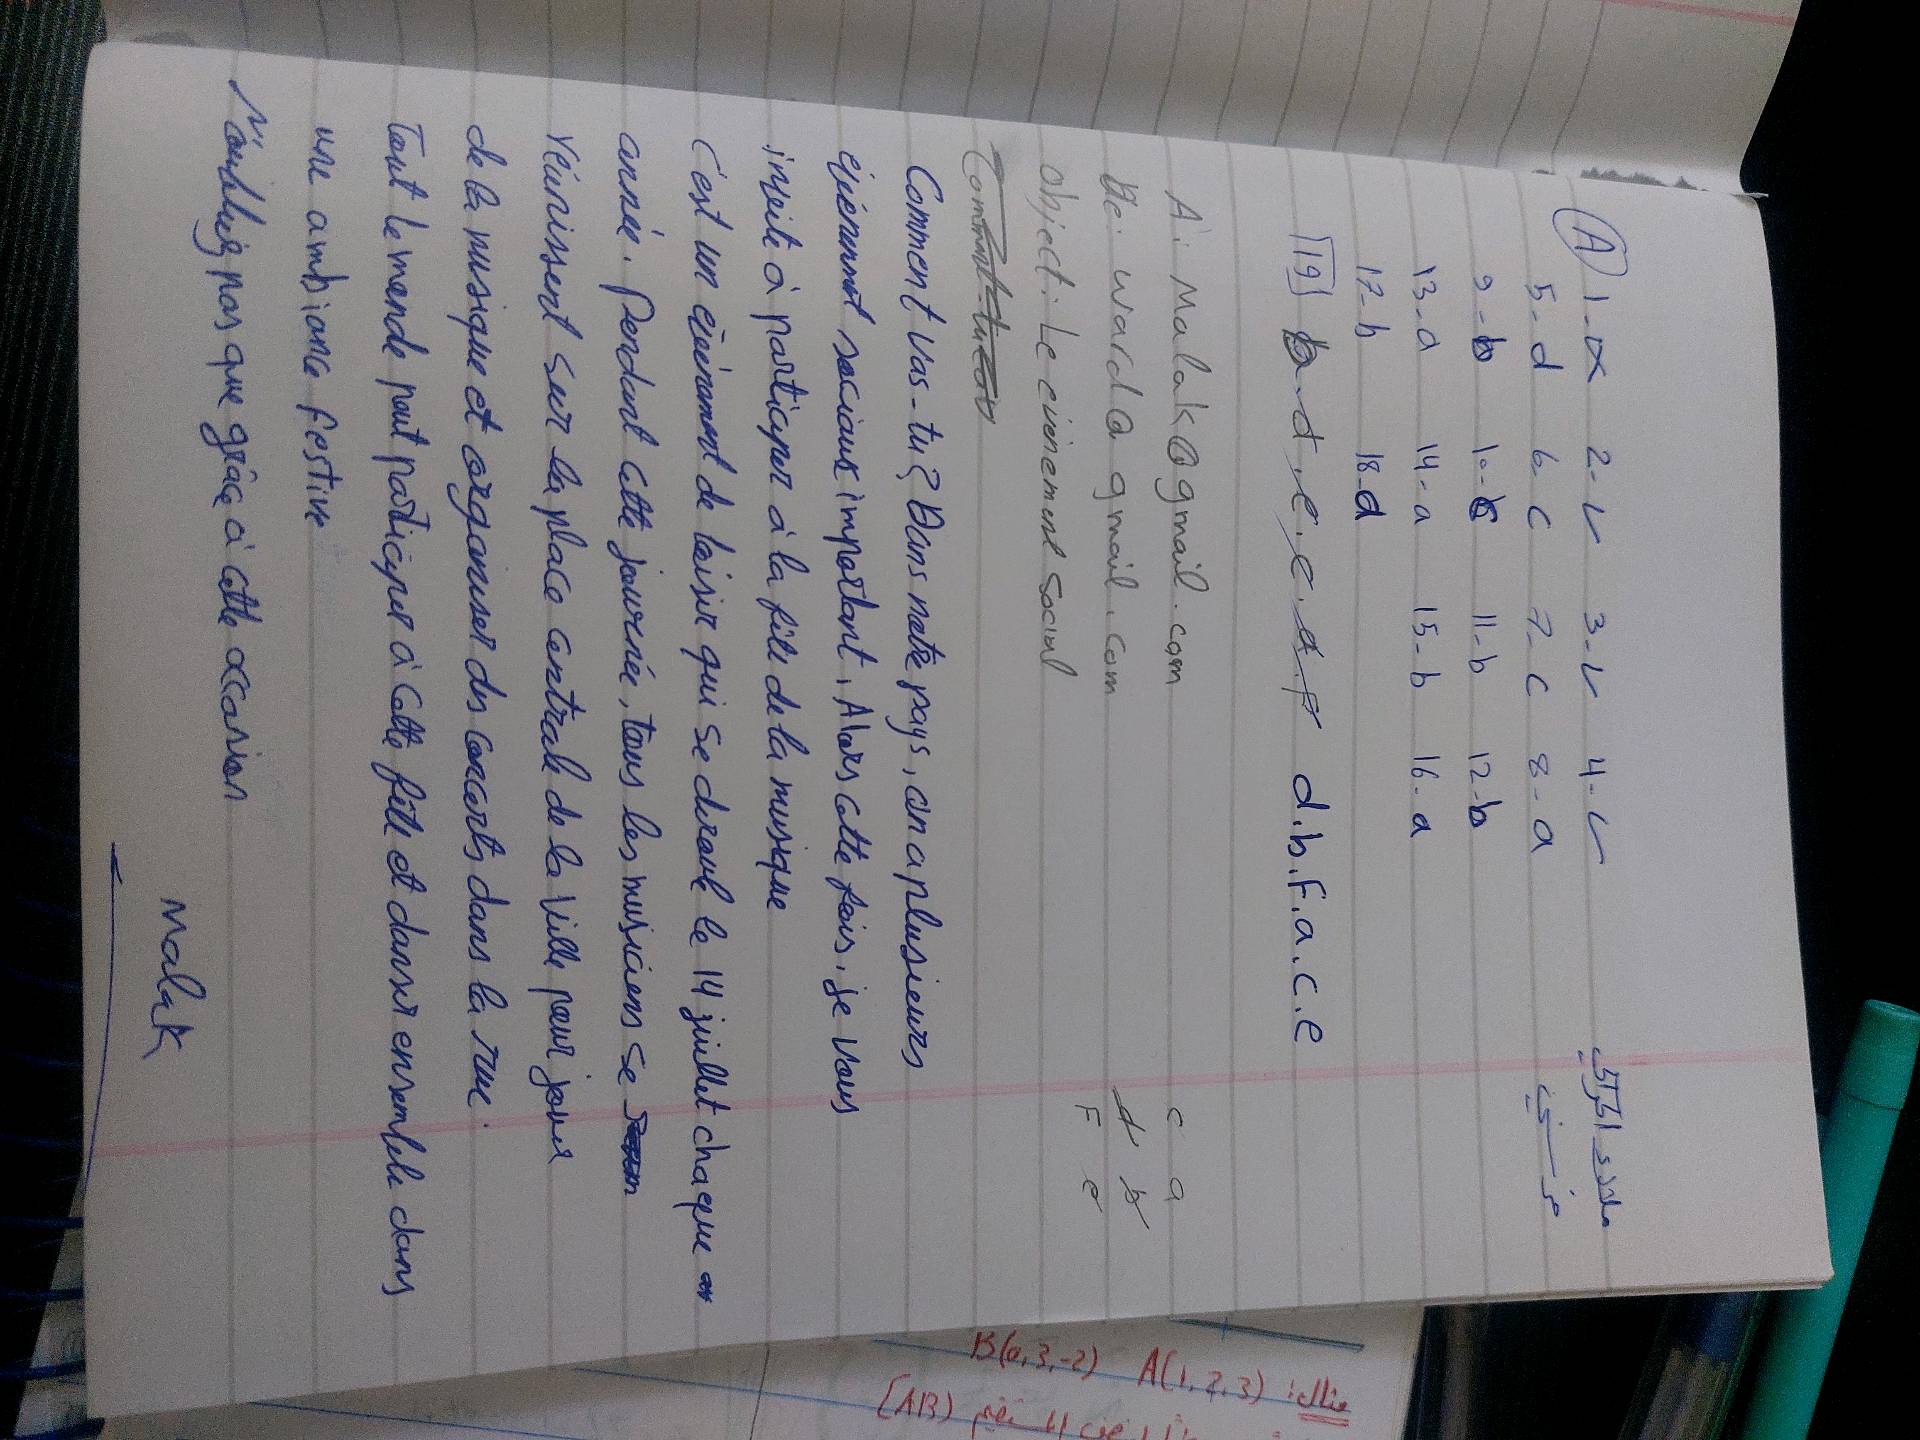 A 1-x 2-v 3-v 4-v
5-d 6-c 7-c 8-a
9-b 10-c 11-b 12-b
13-a 14-a 15-b 16-a
17-b 18-d
19 d.b.F.a.c.e
A: Malak@gmail.com c a
De: ward@gmail.com d b
Object: Le evénement social F e
Comment vas-tu? Dans notre pays, on a plusieurs
événement sociaux important. Alors cette fois, je vous
inveite à participer à la fête de la musique
C'est un événement de loisir qui se déroule le 14 juillet chaque
année. Pendant cette journée, tous les musiciens se
réunissent sur la place centrale de la ville pour jouer
de la musique et organiser des concerts dans la rue.
Tout le monde peut participer à cette fête et danser ensemble dans
une ambiance festive
N'oubliez pas que grâce à cette occasion
Malak
B(0,3,-2) A(1,2,3)
[AB)